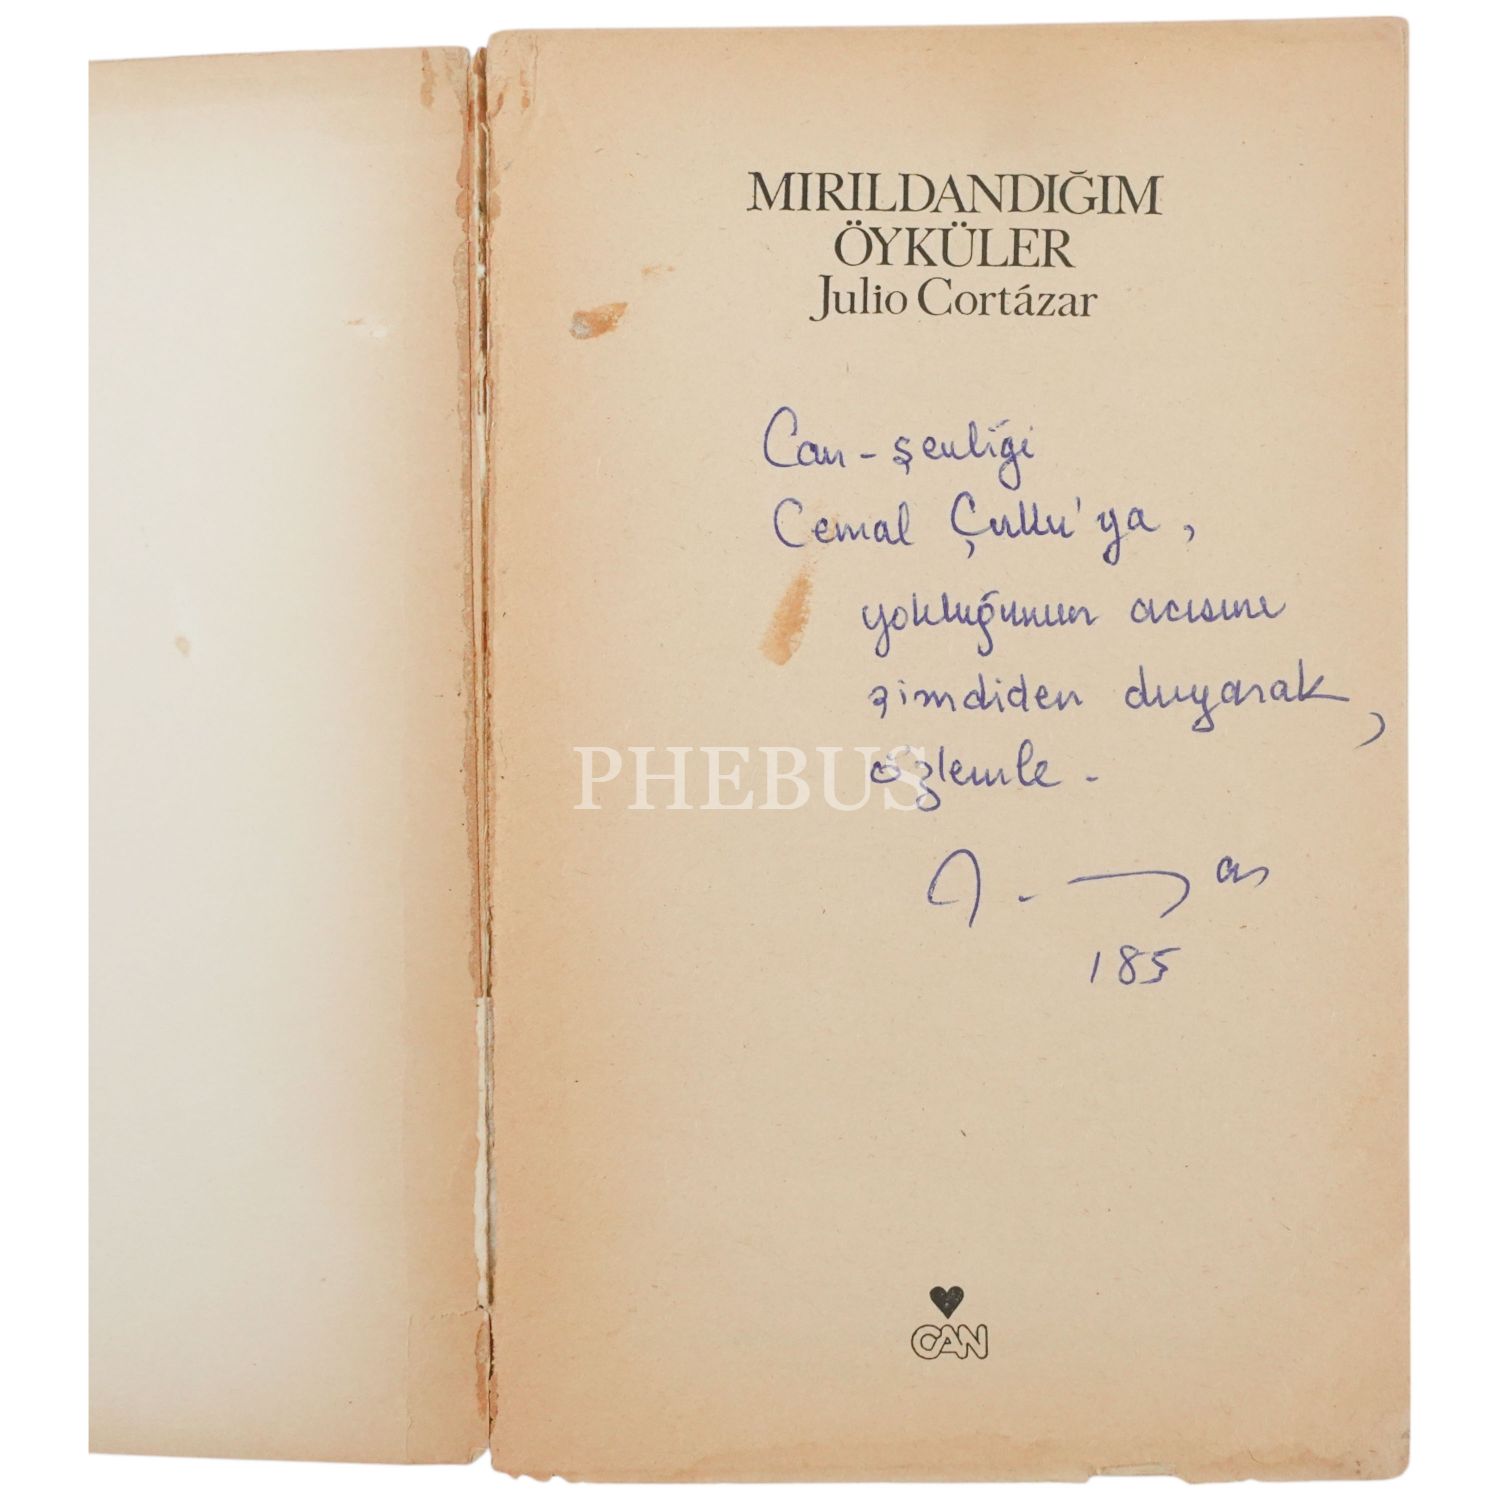 MIRILDANDIĞIM
ÖYKÜLER
Julio Cortázar
Can-şenliği
Cemal Çullu'ya,
yokluğunun acısını
şimdiden duyarak,
özlemle.
PHEBUS
185
CAN